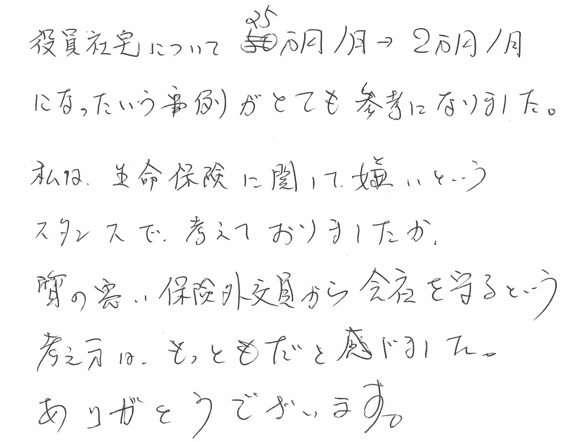 役員社宅について 25万円/月→2万円/月
になったいう事例がとても参考になりました。
私は、生命保険に関して、嫌いという
スタンスで、考えておりましたが、
質の悪い保険外交員から会社を守るという
考え方は、もっともだと感じました。
ありがとうございます。